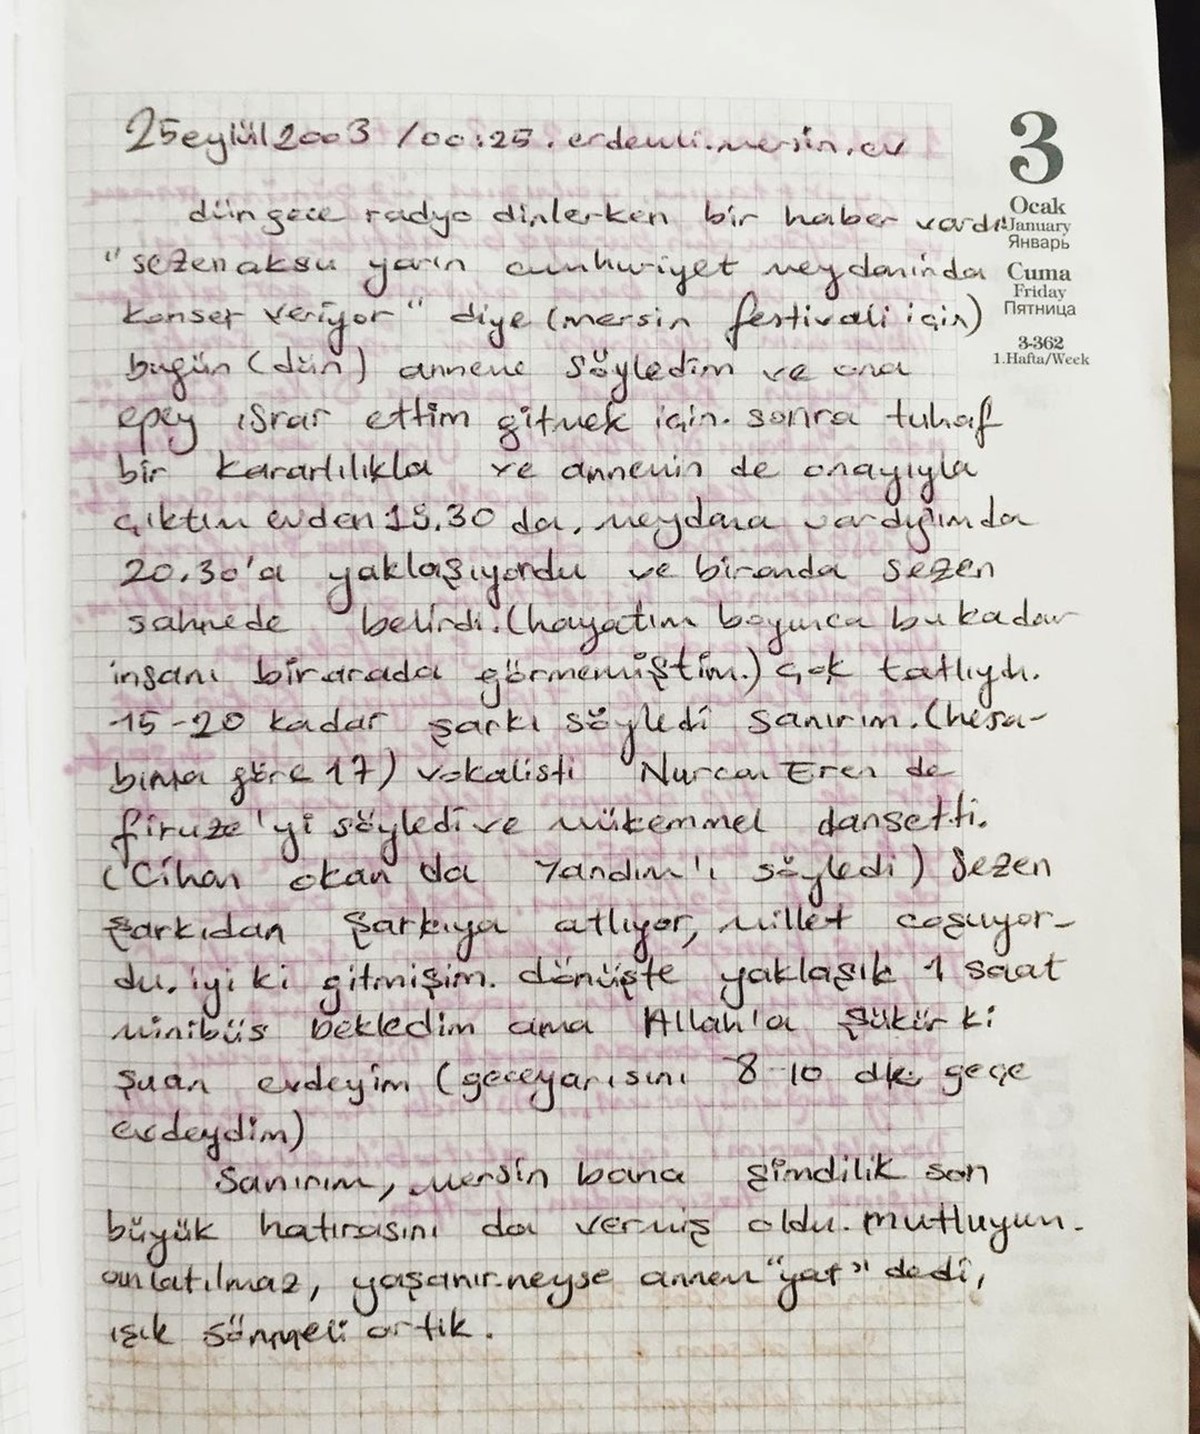 25 eylül 2003 /00:25. erdemli.mersin.ev
3
Ocak
January
Январь
Cuma
Friday
Пятница
3-362
1.Hafta/Week
dün gece radyo dinlerken bir haber vardı:
"sezen aksu yarın cumhuriyet meydanında
konser veriyor" diye (mersin festivali için)
bugün (dün) anneme söyledim ve ona
epey ısrar ettim gitmek için. sonra tuhaf
bir kararlılıkla ve annemin de onayıyla
çıktım evden 18.30 da. meydana vardığımda
20.30'a yaklaşıyordu ve biranda sezen
sahnede belirdi. (hayatım boyunca bu kadar
insanı birarada görmemiştim.) çok tatlıydı.
15-20 kadar şarkı söyledi sanırım. (hesa-
bıma göre 17) vokalisti Nurcan Eren de
firuze'yi söyledi ve mükemmel dansetti.
(Cihan okan da Yandım'ı söyledi) Sezen
şarkıdan şarkıya atlıyor, millet coşuyor-
du. iyi ki gitmişim. dönüşte yaklaşık 1 saat
minibüs bekledim ama Allah'a şükür ki
şuan evdeyim (geceyarısını 8-10 dk geçe
evdeydim)
Sanırım, mersin bana şimdilik son
büyük hatırasını da vermiş oldu. mutluyum.
anlatılmaz, yaşanır. neyse annem "yat" dedi,
ışık sönmeli artık.